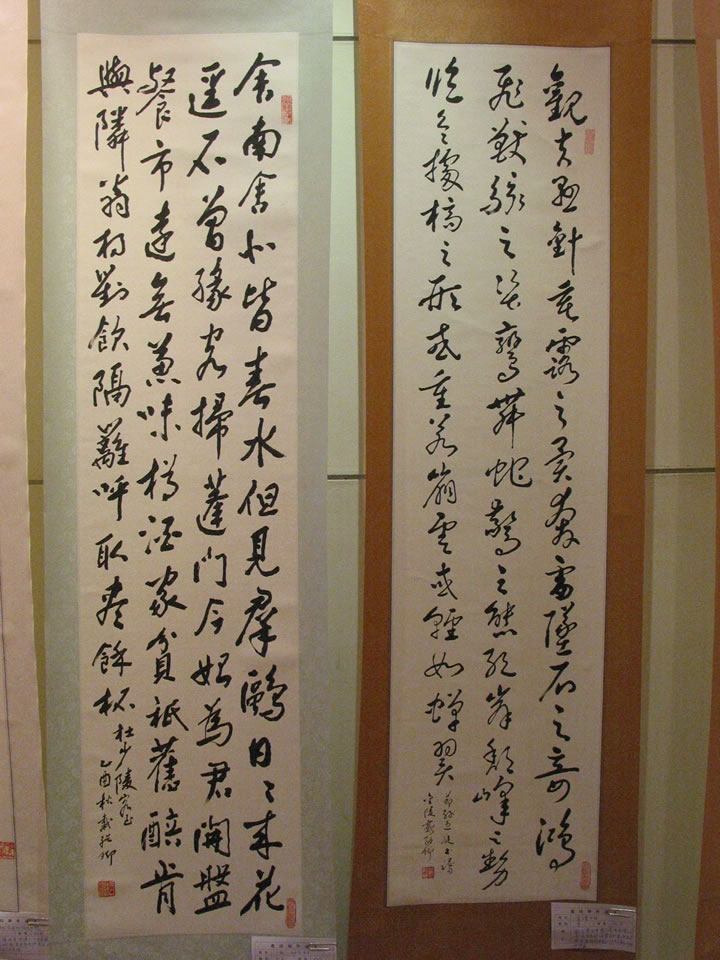 觀夫懸針垂露之異奔雷墜石之奇鴻
飛獸駭之姿鸞舞蛇驚之態絕岸頹峰之勢
臨危據槁之形或重若崩雲或輕如蟬翼
舍南舍北皆春水但見羣鷗日々來花
逕不曾緣客掃蓬門今始為君開盤
飱市遠無兼味樽酒家貧祇舊醅肯
與隣翁相對飲隔籬呼取盡餘杯
杜少陵客至
乙酉秋戴